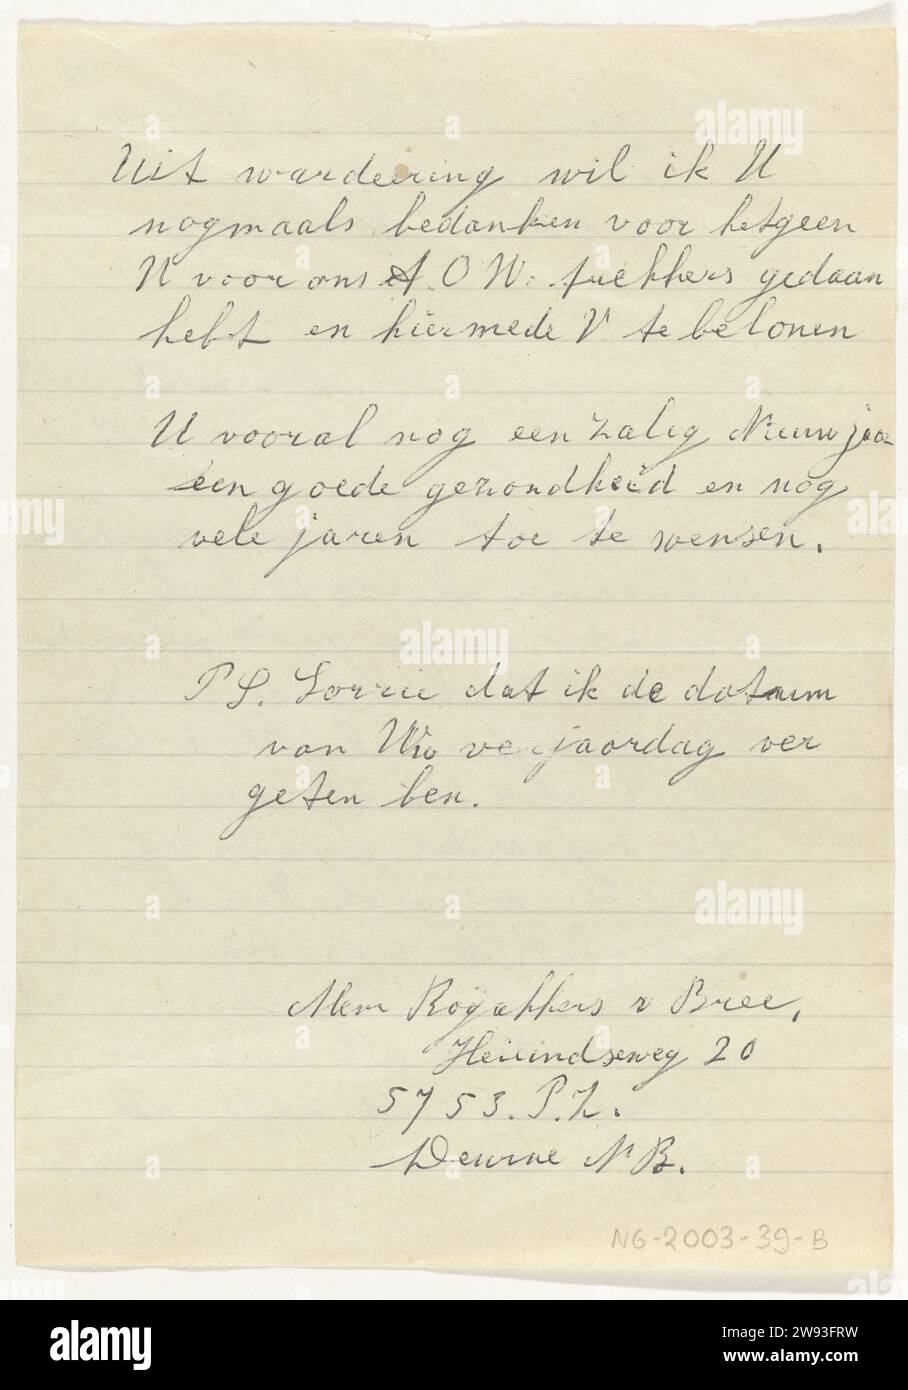 Uit wardeering wil ik U
nogmaals bedanken voor hetgeen
U voor ons A.O.W. trekkers gedaan
hebt en hiermede U te belonen
U vooral nog een zalig Nieuwjaar
een goede gezondheid en nog
vele jaren toe te wensen.
P S. Sorrie dat ik de datum
van Uw verjaardag ver
geten ben.
Mevr v Bree,
20
5753. P.Z.
Deurne N B.
NG-2003-39-B
alamy
Image ID: 2W93FRW
www.alamy.com